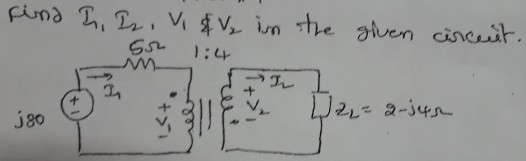 Find I₁, I₂, V₁ & V₂ in the given circuit.
5Ω 1:4
I₁ I₂
+ + + 
j80 V₁ V₂ ZL = 2-j4Ω
- - -